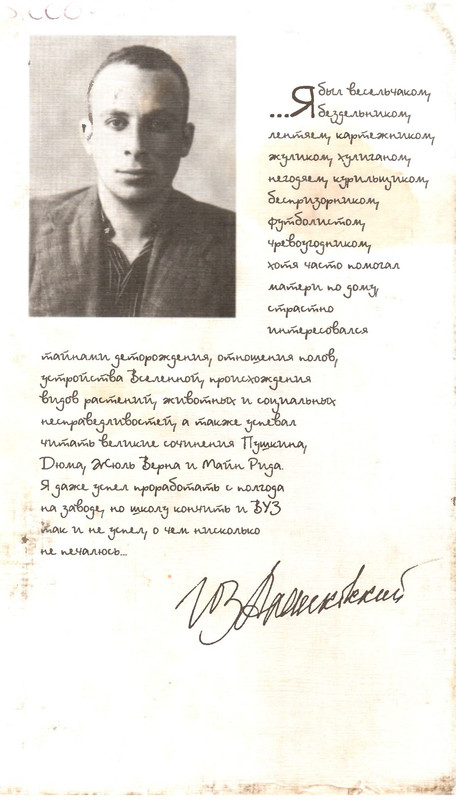 ...Я был весельчаком,
бездельником,
лентяем, картежником,
жуликом, хулиганом,
негодяем, курильщиком,
беспризорником,
футболистом,
чревоугодником,
хотя часто помогал
матери по дому,
страстно
интересовался
тайнами деторождения, отношения полов,
устройства Вселенной, происхождения
видов растений, животных и социальных
несправедливостей, а также успевал
читать великие сочинения Пушкина,
Дюма, Жюль Верна и Майн Рида.
Я даже успел проработать с полгода
на заводе, но школу кончить и ВУЗ
так и не успел, о чем нисколько
не печалюсь...